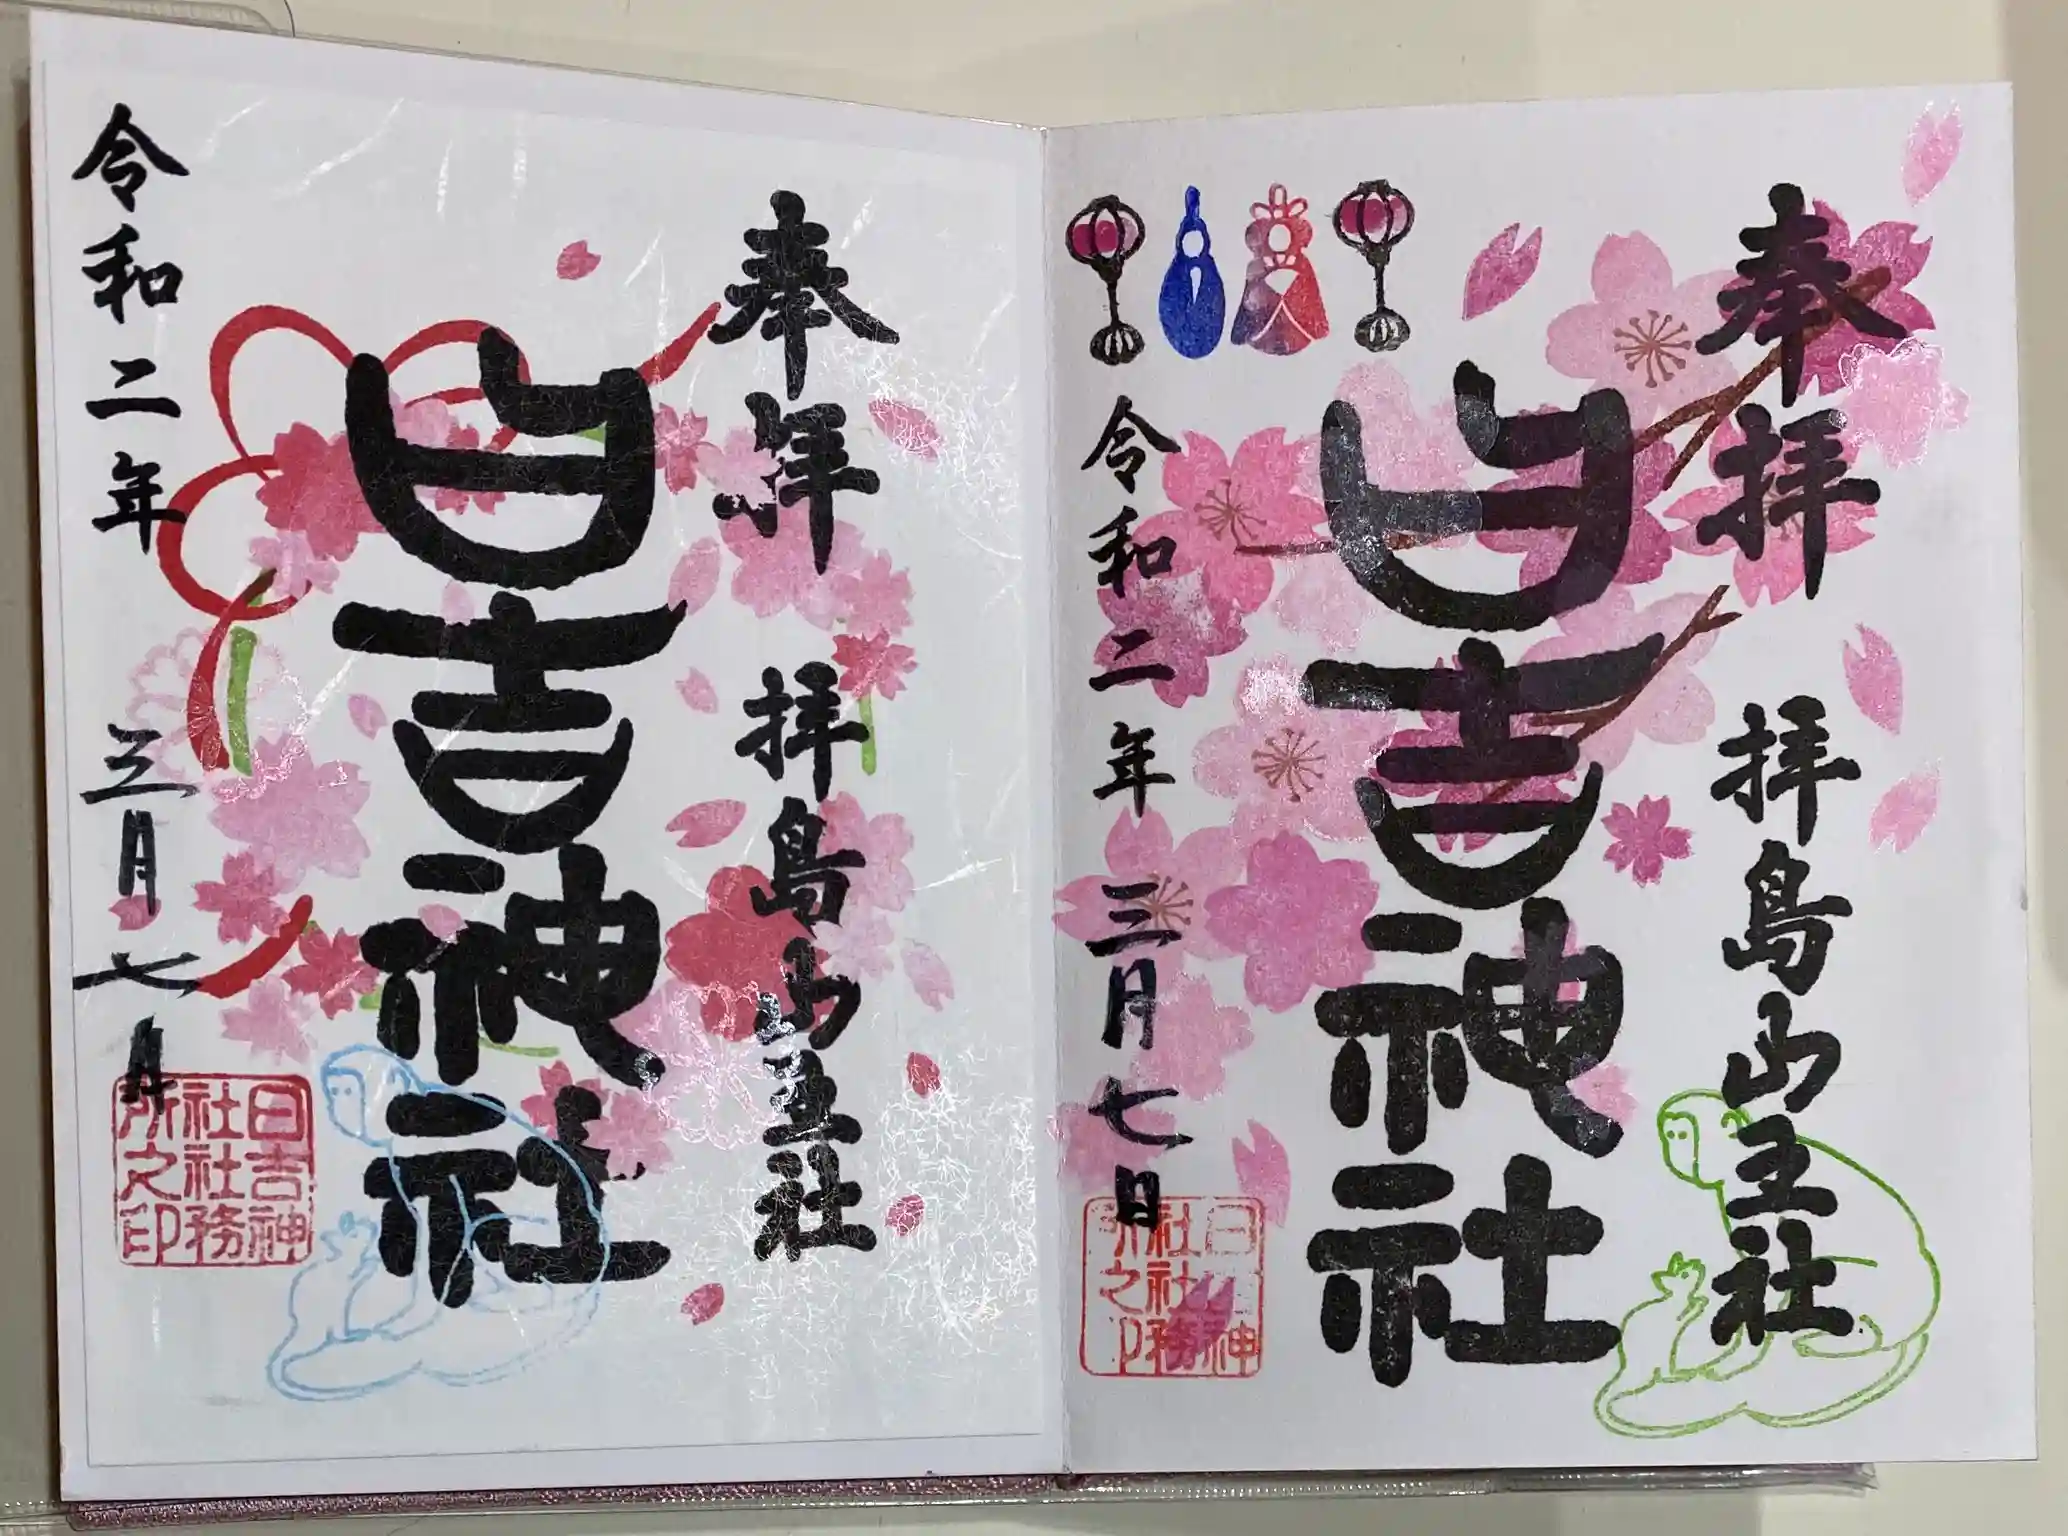 奉拝
拝島山王社
日吉神社
令和二年三月七日
日吉神
社社務
所之印
奉拝
拝島山王社
日吉神社
令和二年三月七日
日吉神
社社務
所之印